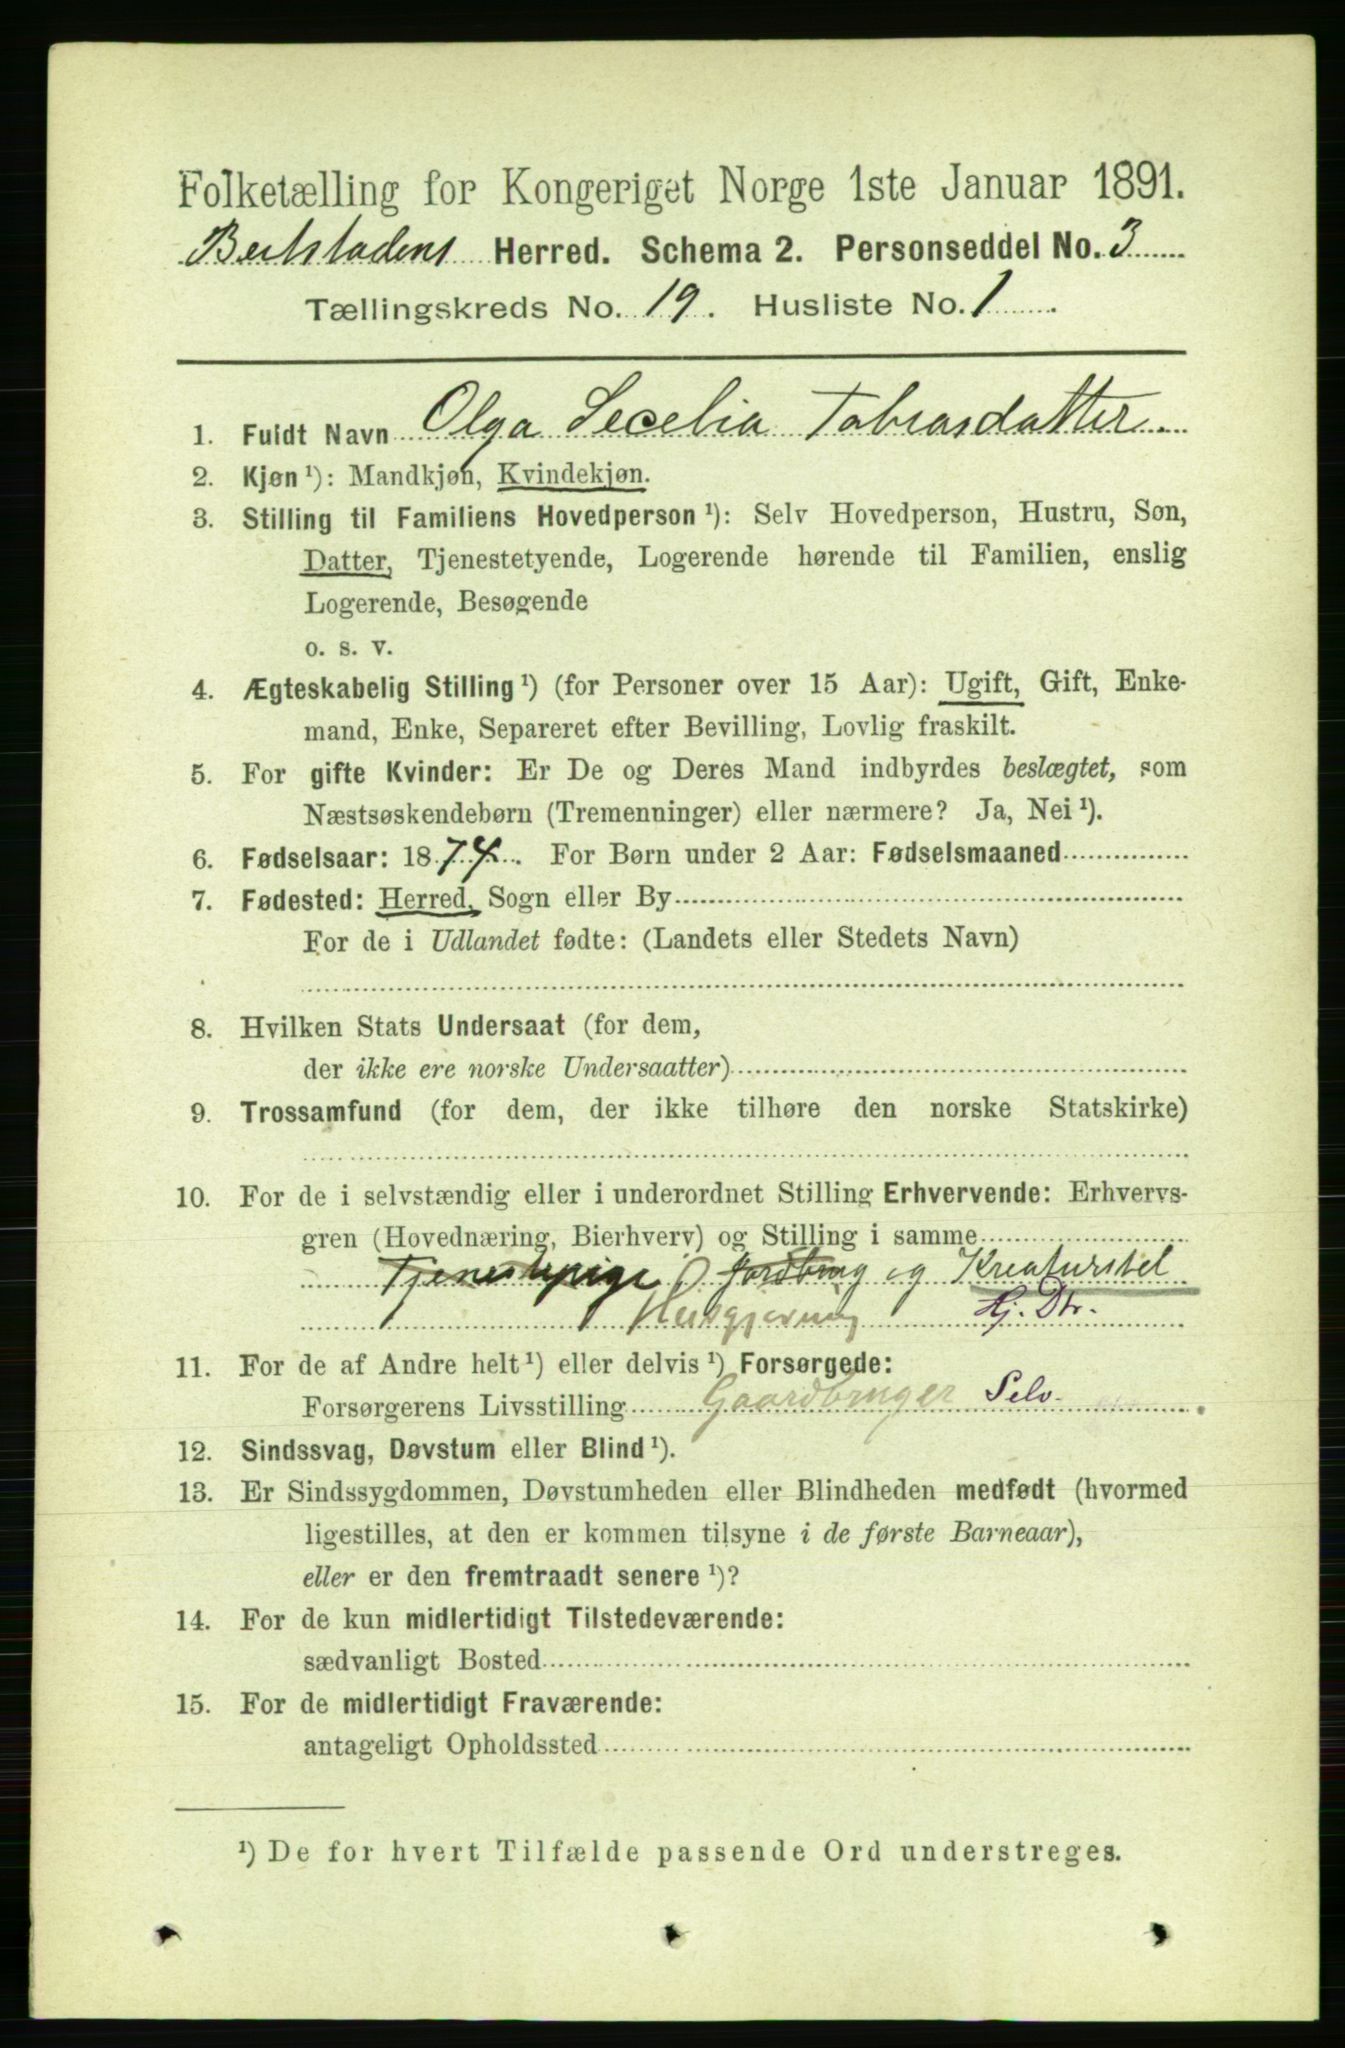 Folketælling for Kongeriget Norge 1ste Januar 1891.
Beitstadens Herred. Schema 2. Personseddel No. 3
Tællingskreds No. 19. Husliste No. 1.
1. Fuldt Navn Olga Secelia Tobiasdatter
2. Kjøn ¹): Mandkjøn, Kvindekjøn.
3. Stilling til Familiens Hovedperson ¹): Selv Hovedperson, Hustru, Søn,
Datter, Tjenestetyende, Logerende hørende til Familien, enslig
Logerende, Besøgende
o. s. v.
4. Ægteskabelig Stilling ¹) (for Personer over 15 Aar): Ugift, Gift, Enke-
mand, Enke, Separeret efter Bevilling, Lovlig fraskilt.
5. For gifte Kvinder: Er De og Deres Mand indbyrdes beslægtet, som
Næstsøskendebørn (Tremenninger) eller nærmere? Ja, Nei ¹).
6. Fødselsaar: 1874. For Børn under 2 Aar: Fødselsmaaned
7. Fødested: Herred, Sogn eller By
For de i Udlandet fødte: (Landets eller Stedets Navn)
8. Hvilken Stats Undersaat (for dem,
der ikke ere norske Undersaatter)
9. Trossamfund (for dem, der ikke tilhøre den norske Statskirke)
10. For de i selvstændig eller i underordnet Stilling Erhvervende: Erhvervs-
gren (Hovednæring, Bierhverv) og Stilling i samme
Tjenestepige Jordbrug og Kreaturstel
Husgjerning Hj. Dtr.
11. For de af Andre helt ¹) eller delvis ¹) Forsørgede:
Forsørgerens Livsstilling Gaardbruger Selv.
12. Sindssvag, Døvstum eller Blind ¹).
13. Er Sindssygdommen, Døvstumheden eller Blindheden medfødt (hvormed
ligestilles, at den er kommen tilsyne i de første Barneaar),
eller er den fremtraadt senere ¹)?
14. For de kun midlertidigt Tilstedeværende:
sædvanligt Bosted
15. For de midlertidigt Fraværende:
antageligt Opholdssted
¹) De for hvert Tilfælde passende Ord understreges.